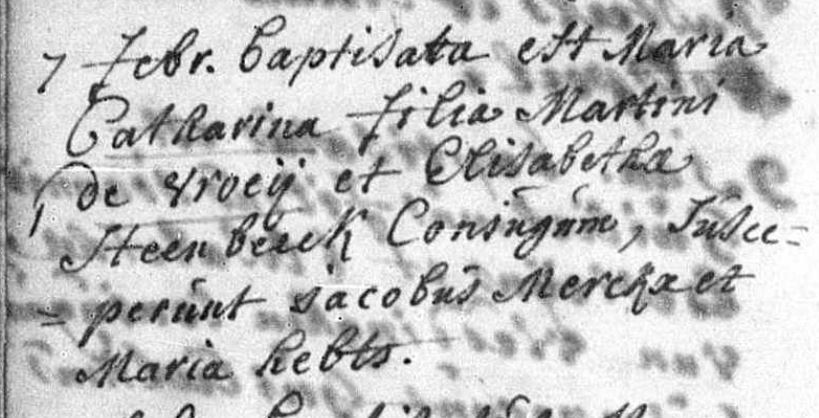 7 Febr. baptisata est Maria
Catharina filia Martini
de vroeij et Elisabetha
Steenbeeck Coniugum, susce=
= perunt iacobus Merckx et
Maria hebts.